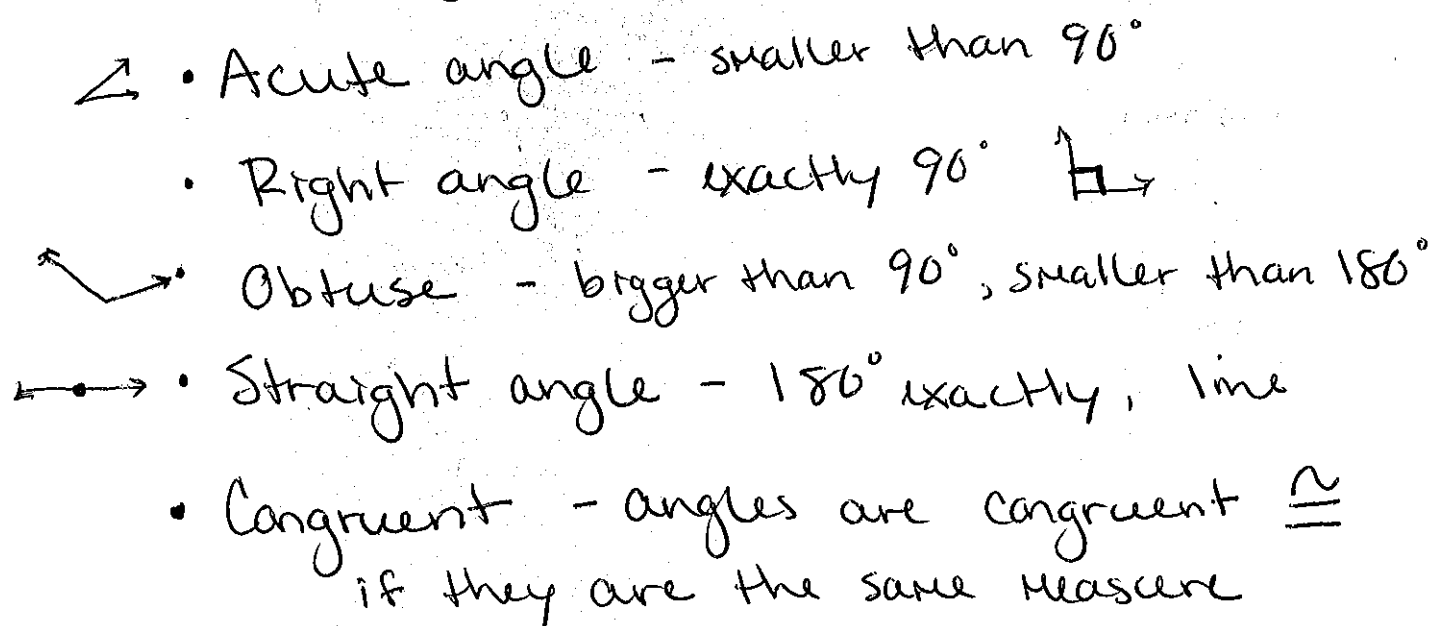 • Acute angle - smaller than 90°
• Right angle - exactly 90°
• Obtuse - bigger than 90°, smaller than 180°
• Straight angle - 180° exactly, line
• Congruent - angles are congruent ≅
if they are the same measure